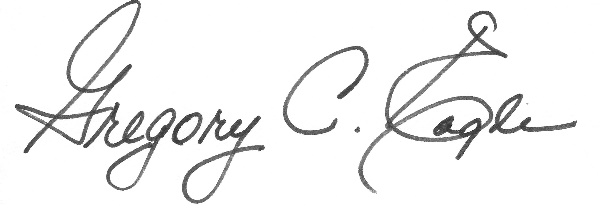 Gregory C. Eagle